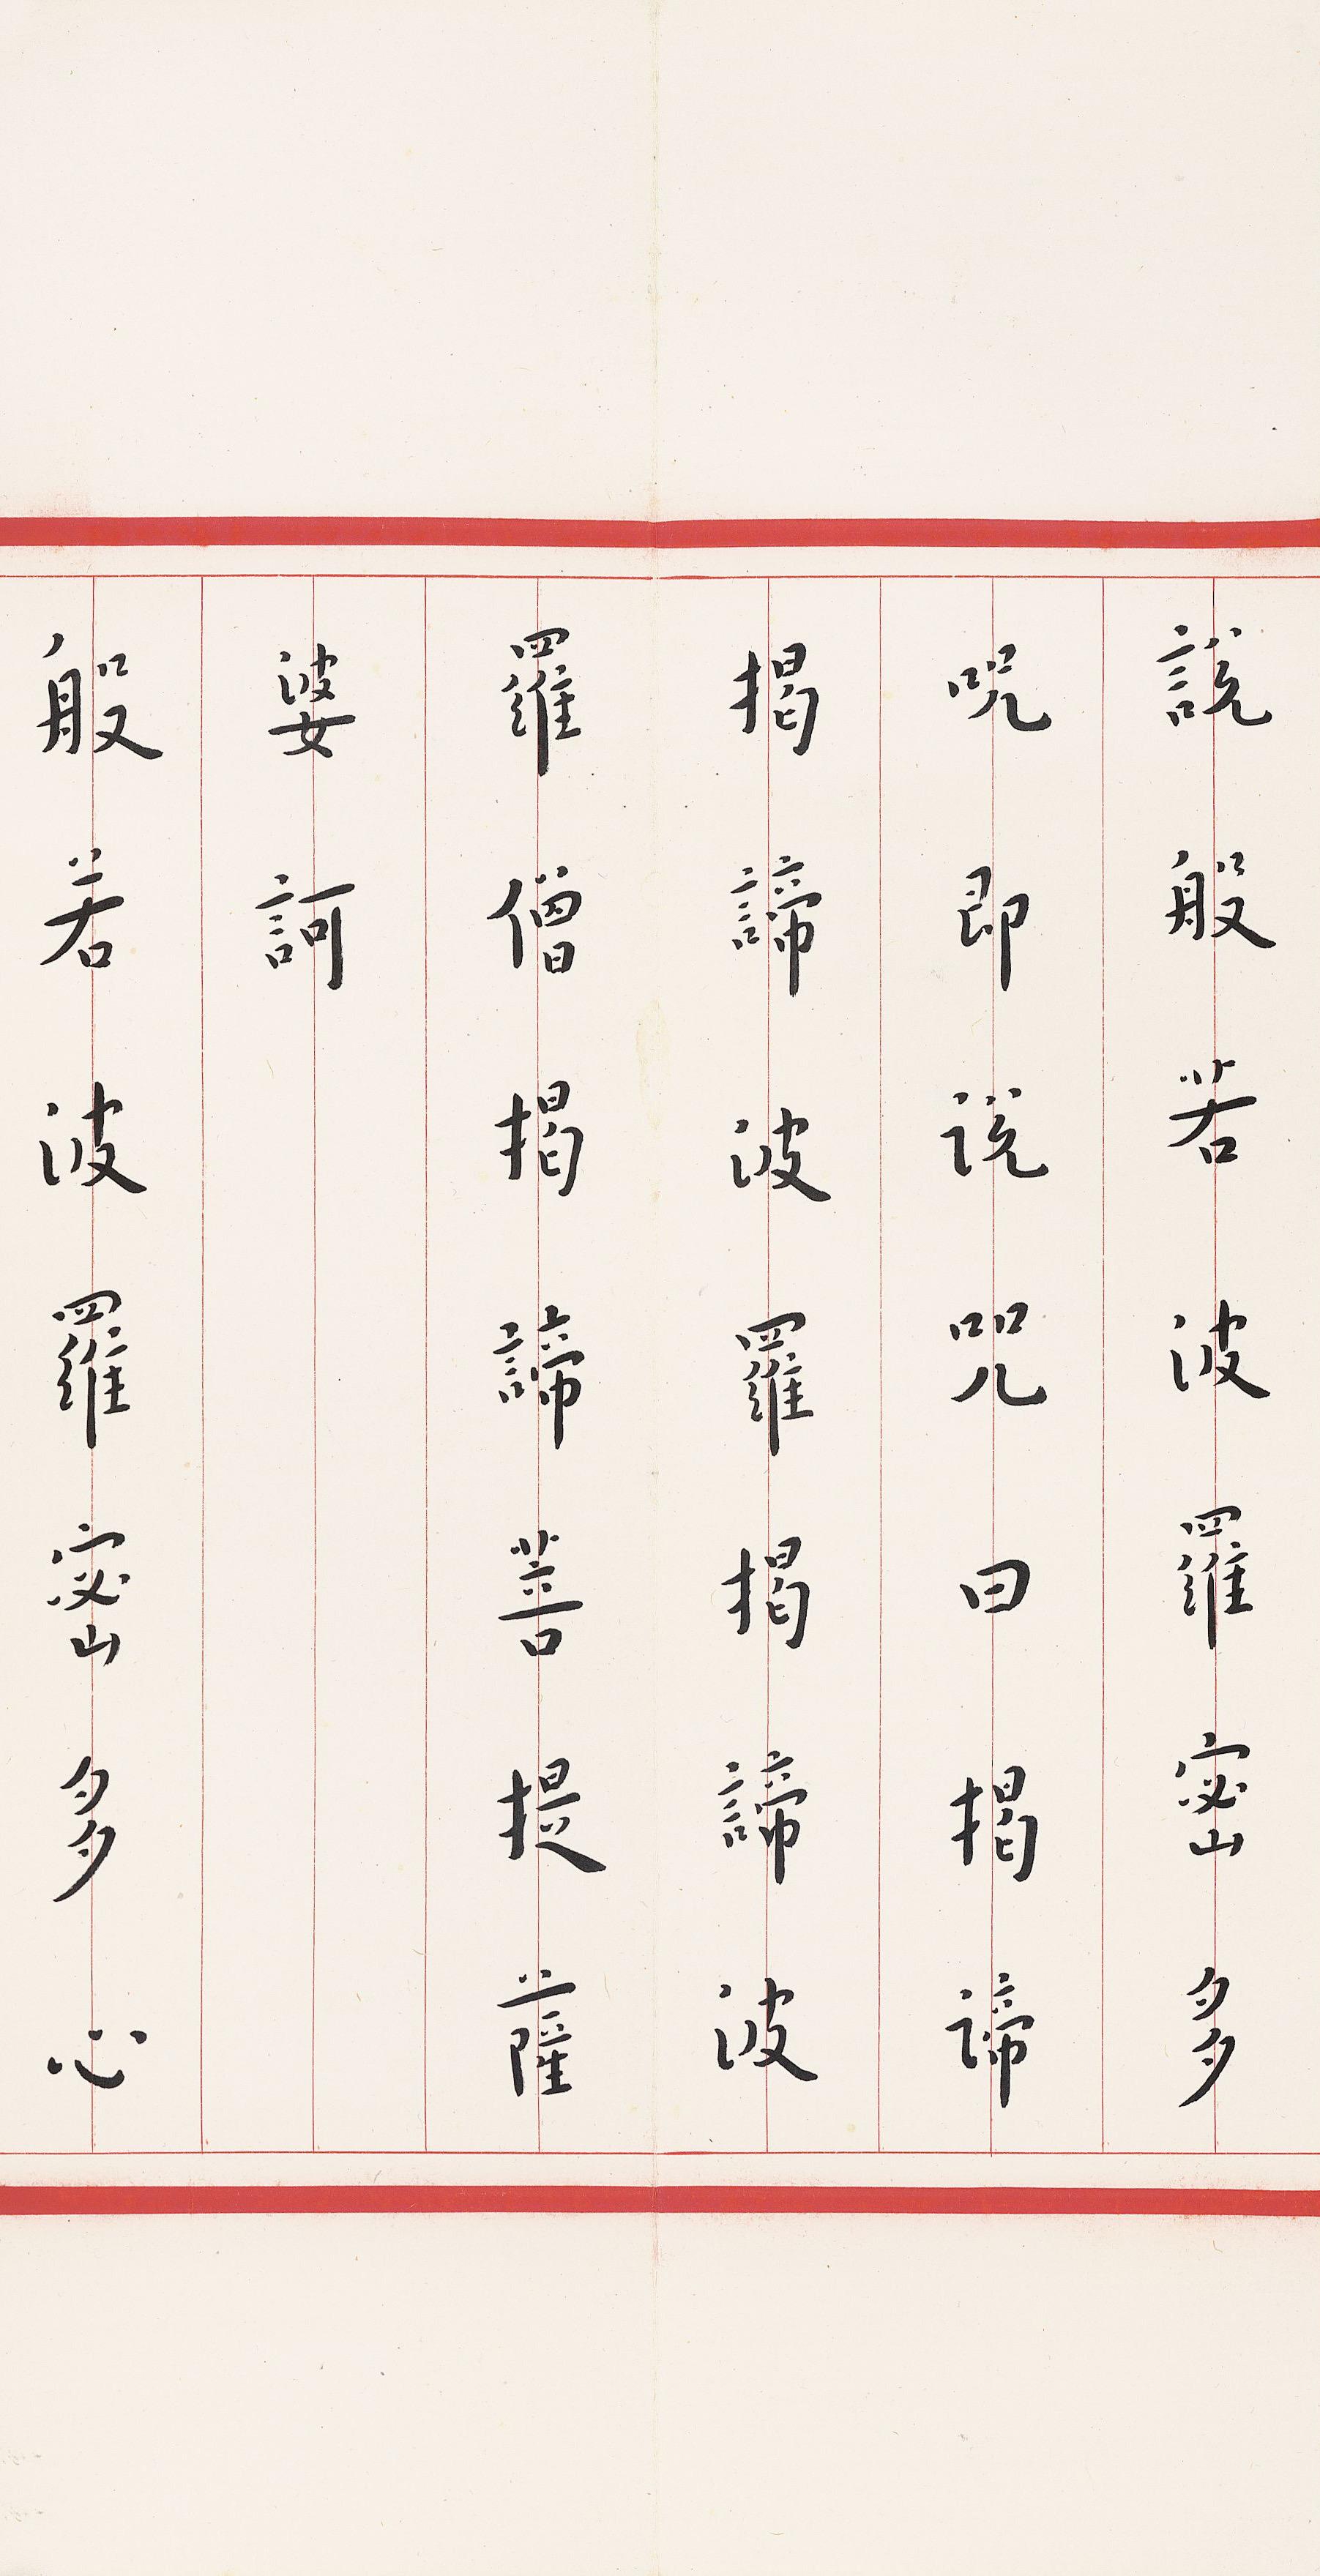 說般若波羅密多
呪即説咒曰揭諦
揭諦波羅揭諦波
羅僧揭諦菩提薩
婆訶
般若波羅密多心